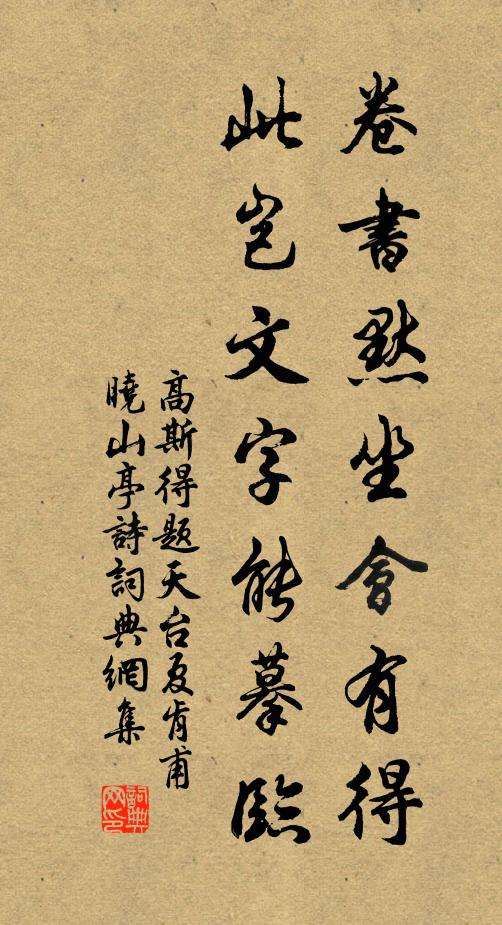 卷書默坐會有得
此豈文字能摹臨
高斯得題天台夏肯甫
曉山亭詩詞典網集
詞典網印